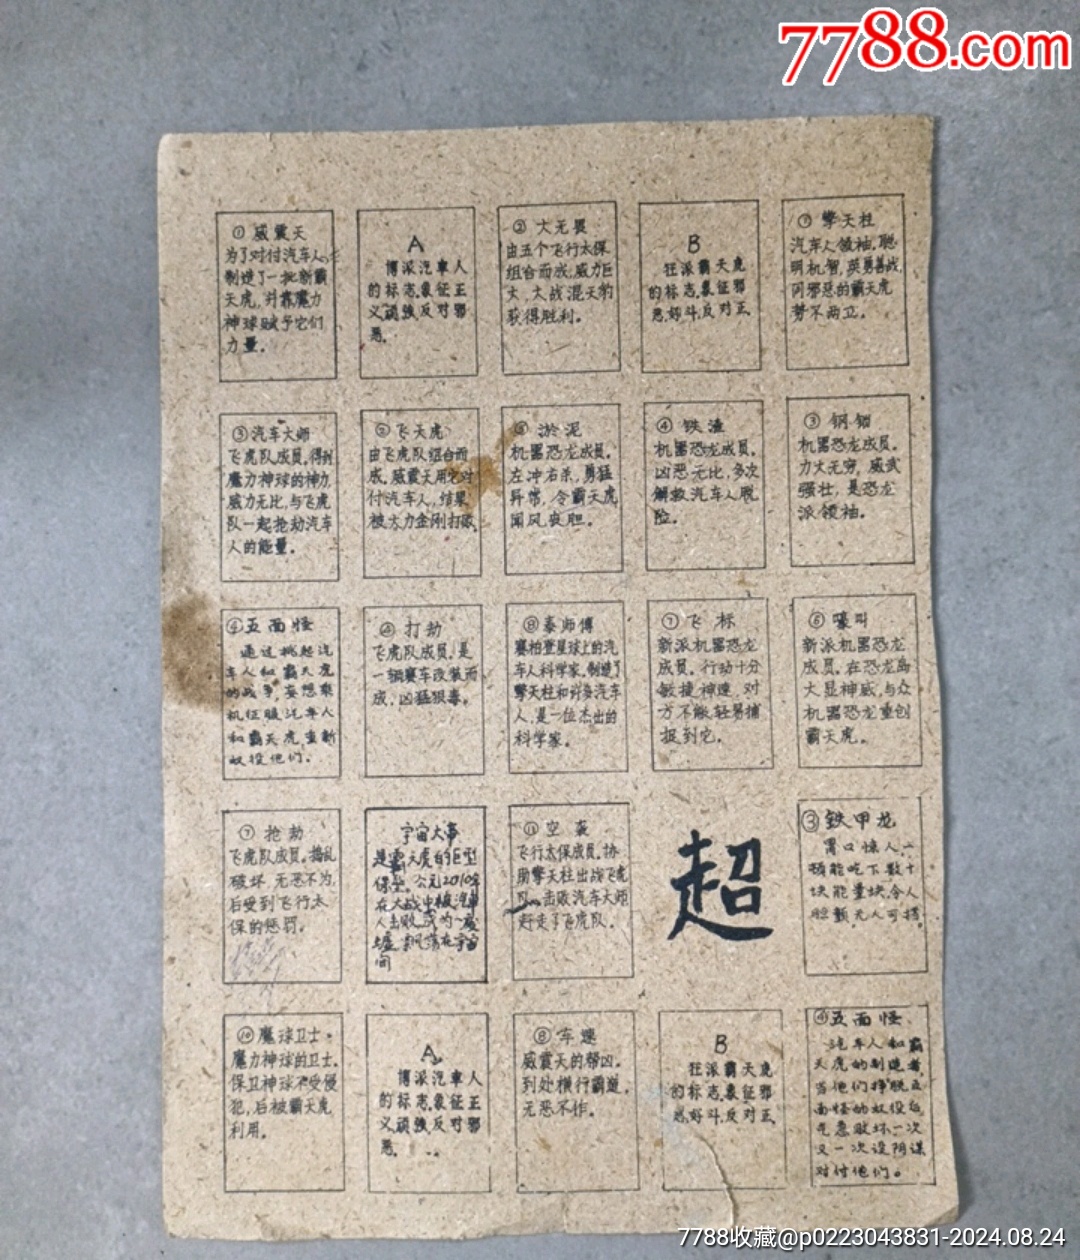 7788.com
① 威震天
为了对付汽车人,
制造了一批新霸
天虎,并靠魔力
神球赋予它们
力量。
A
博派汽车人
的标志,象征正
义顽强反对邪
恶。
② 大无畏
由五个飞行太保
组合而成,威力巨
大,大战混天豹
获得胜利。
B
狂派霸天虎
的标志,象征邪
恶好斗,反对正
擎天柱
汽车人领袖,聪
明机智,英勇善战,
同邪恶的霸天虎
势不两立。
③ 汽车大师
飞虎队成员,得到
魔力神球的神力,
威力无比,与飞虎
队一起抢劫汽车
人的能量。
② 飞天虎
由飞虎队组合而
成,威震天用它对
付汽车人,结果
被大力金刚打败
⑤ 淤泥
机器恐龙成员,
左冲右杀,勇猛
异常,令霸天虎
闻风丧胆。
④ 铁渣
机器恐龙成员,
凶恶无比,多次
解救汽车人脱
险。
③ 钢锁
机器恐龙成员,
力大无穷,威武
强壮,是恐龙
派领袖。
④ 五面怪
通过挑起汽
车人和霸天虎
的战争,妄想乘
机征服汽车人
和霸天虎,重新
奴役他们。
打劫
飞虎队成员,是
一辆赛车改装而
成,凶猛狠毒。
⑧ 泰师傅
赛柏登星球上的汽
车人科学家,制造了
擎天柱和许多汽车
人,是一位杰出的
科学家。
⑦ 飞标
新派机器恐龙
成员,行动十分
敏捷神速,对
方不能轻易捕
捉到它。
⑥ 嚎叫
新派机器恐龙
成员,在恐龙岛
大显神威,与众
机器恐龙重创
霸天虎。
⑦ 抢劫
飞虎队成员,捣乱
破坏,无恶不为,
后受到飞行太
保的惩罚。
宇宙大帝
是霸天虎的巨型
保垒,公元2010年
在大战中被汽车
人击败,成为一座
墟,飘荡在宇宙
间
⑪ 空袭
飞行太保成员,协
助擎天柱出战飞虎
队,击败汽车大师
赶走了飞虎队。
超
③ 铁甲龙
胃口惊人,一
顿能吃下数十
块能量块,令人
胆颤,无人可挡。
⑩ 魔球卫士
魔力神球的卫士,
保卫神球不受侵
犯,后被霸天虎
利用。
A
博派汽车人
的标志,象征正
义顽强反对邪
恶。
⑧ 车速
威震天的帮凶,
到处横行霸道,
无恶不作。
B
狂派霸天虎
的标志,象征邪
恶好斗,反对正
④ 五面怪
汽车人和霸
天虎的制造者,
当他们挣脱五
面怪的奴役后,
气急败坏一次
又一次设阴谋
对付他们。
7788收藏@p0223043831-2024.08.24